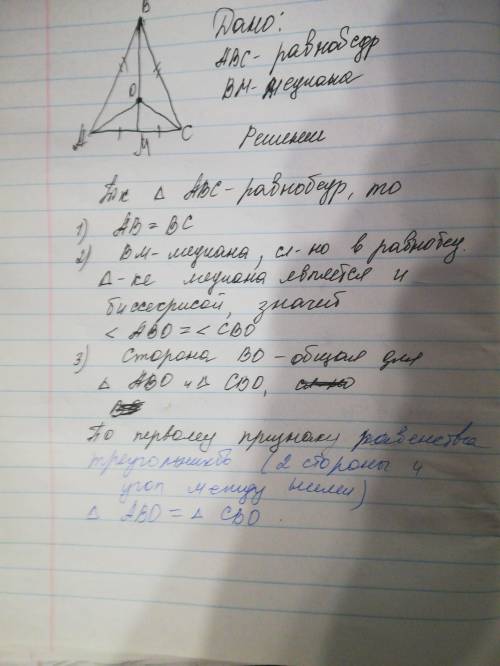 B
O
A
M
C
Дано:
ABC - равнобедр
BM - медиана
Решение
Так ∆ ABC - равнобедр, то
1) AB = BC
2) BM - медиана, сл-но в равнобед.
∆-ке медиана является и
биссектрисой, значит
< ABO = < CBO
3) Сторона BO - общая для
∆ ABO и ∆ CBO,
По первому признаку равенства
треугольников (2 стороны и
угол между ними)
∆ ABO = ∆ CBO.